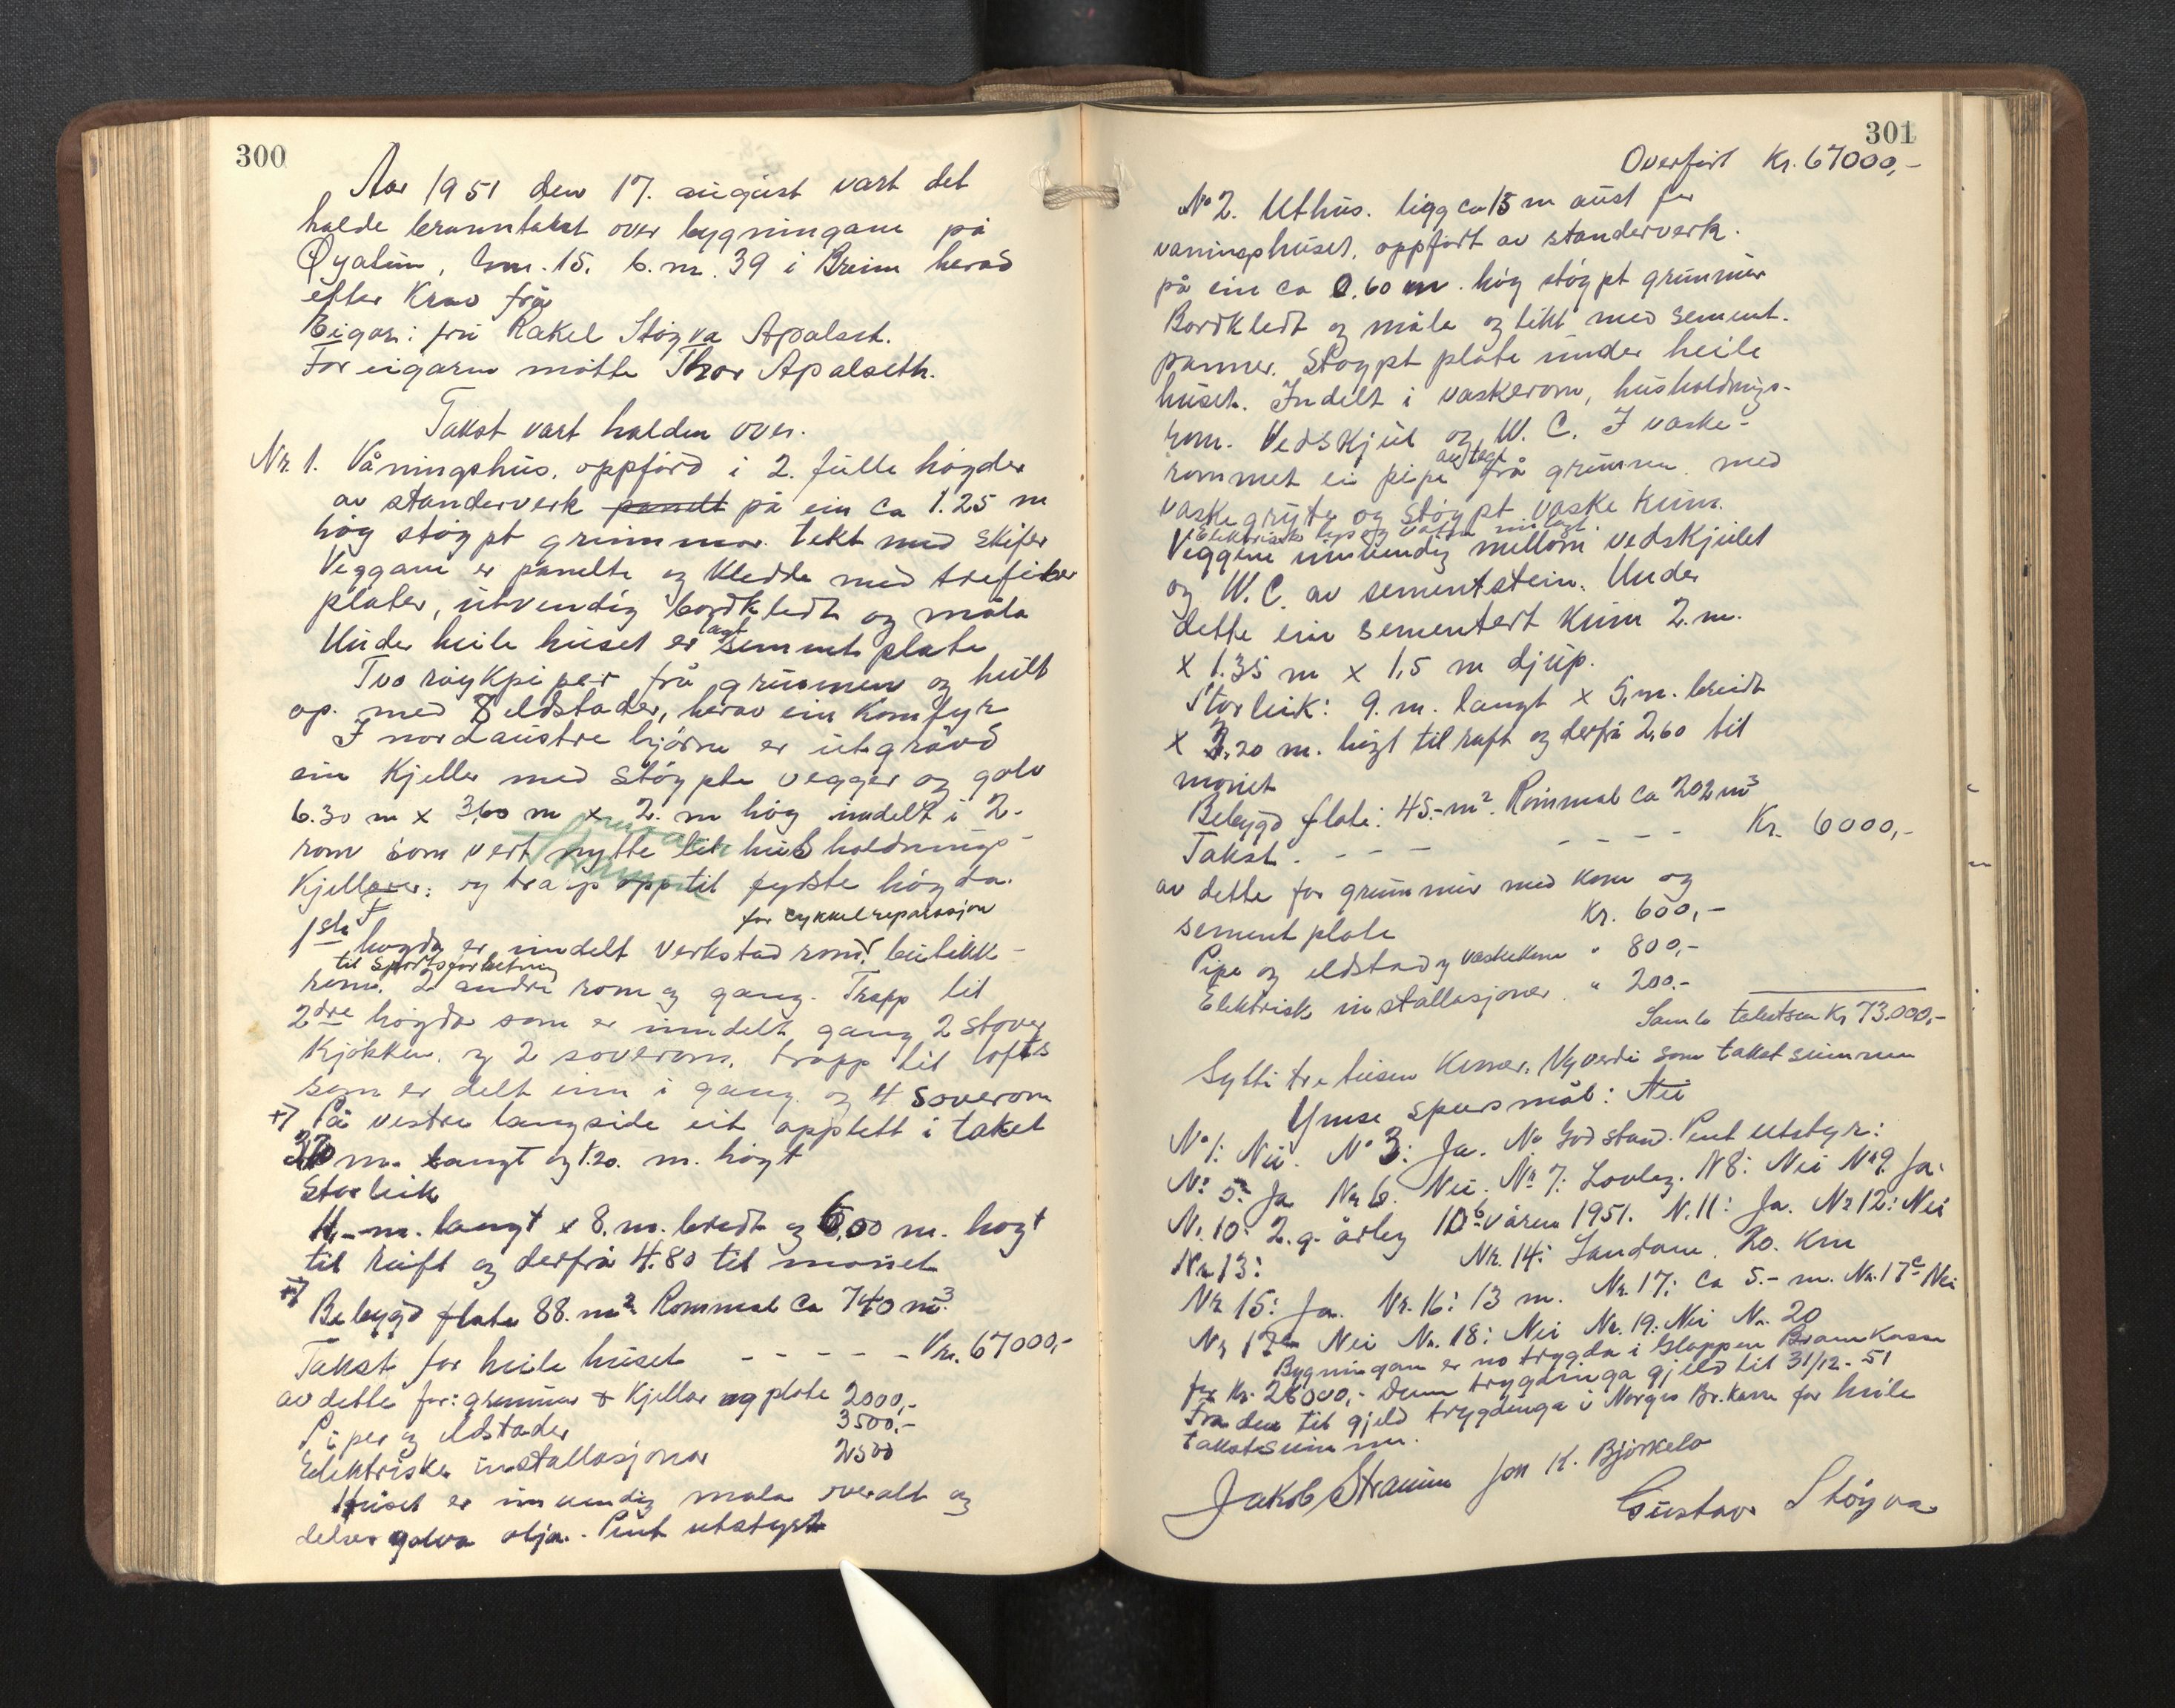 300
Aar 1951 den 17. august vart det
halde branntakst over bygningane på
Øyatun, Gnr. 15. b.nr. 39 i Breim herad
etter krav frå
Eigar: fru Rakel Støyva Apalset.
For eigaren møtte Thor Apalseth.
Takst vart halden over.
Nr. 1. Våningshus, oppförd i 2. fulle högder
av standerverk panelt på ein ca 1.25 m
høg støypt grunnmur. Tekt med skifer
Veggane er panelte og kledde med trefiber
plater, utvendig bordkledt og måla
Under heile huset er lagt sement plate
Tvo röykpiper frå grunnen og heilt
op. med 8 eldstader, herav ein komfyr
I nordaustre hjörne er utgrävd
ein kjeller med støypte vegger og golv
6.30 m x 3,60 m x 2. m høg inndelt i 2.
rom som vert nytte til husholdnings-
kjellarer: og trapp opp til fyrste høgda.
for cykkelreparasjon
1ste høgda er inndelt verkstad rom, butikk-
til sportsforretning
rom. 2 andre rom og gang. Trapp til
2dre høgda som er inndelt gang 2 stover
kjøkken. og 2 soverom, trapp til lofts
som er delt inn i gang og 4 soverom
+) På vestre langside eit opplett i taket
m. langt og 1.20. m. högt
Storleik
11,- m. langt x 8. m. breidt og 6,00 m. høgt
til raft og derfrå 4.80 til mønet
+)
Bebygd flate 88. m² Rommål ca 740 m³.
Takst for heile huset - - - - - Kr. 67000,-
av dette for: grunnmur & Kjellar og plate 2000,-
Piper og eldstader 3500,-
Elektriske installasjonar 2500
Huset er innvendig måla overalt og
delvis golva olja. Pent utstyrt
301
Overført Kr. 67000,-
No 2. Uthus. ligg ca 15 m aust for
våningshuset, oppført av standerverk.
på ein ca 0.60 m. høg støypt grunnmur
Bordkledt og måla og tekt med sement.
panner. Støypt plate under heile
huset. Indelt i vaskerom, husholdnings-
rom. Vedskjul og W. C. I vaske-
rommet ei pipe frå grunnen med
vaskegryte og støypt vaske kum.
Elektrisk lys og vatn innlagt.
Veggene innvendig mellom vedskjulet
og W. C. av sementstein. Under
dette ein sementert kum 2. m.
x 1.35 m x 1,5 m djup.
Storleik: 9. m. langt x 5,m. breidt
x 3.20 m. høgt til raft og derfrå 2,60 til
mønet
Bebygd flate: 45.- m². Rommål ca 202 m³
Takst. - - - - - - - Kr. 6000,-
av dette for grunnmur med kum og
sement plate Kr. 600,-
Pipe og eldstad og vaskekum " 800,-
Elektrisk installasjoner. " 200.-
Samla takstsum Kr 73.000,-
Sytti tre tusen Kroner. Nyverdi som takst summen
Ymse spursmål: Nei
No 1: Nei. No 3: Ja. No God stand. Pent utstyr:
No 5: Ja Nr 6. Nei. No 7: Lovleg. N 8: Nei No 9. Ja.
Nr. 10: 2. g. årleg våren 1951. N. 11: Ja. Nr 12: Nei
Nr 13: Nr. 14: Sandane. 20. km
Nr 15: Ja. Nr. 16: 13 m. Nr. 17: ca 5.- m. Nr. 17c Nei
Nr 17 Nei Nr. 18: Nei Nr. 19: Nei Nr. 20
Bygningane er no trygda i Gloppen Brannkasse
for Kr. 26000,- Denne trygdinga gjeld til 31/12-51
Frå den tid gjeld trygdinga i Norges Br. kasse for heile
takstsummen.
Jakob Straume Jon K. Bjørkelo
Gustav Støyva